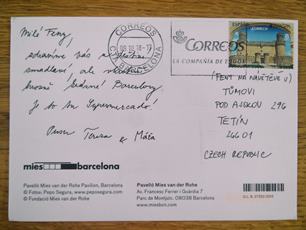 Milé Feny,
zdravíme vás
ale
krásné Barcelony
Je to tu Supermercado!
Pusu Terusa a Máťa
CORREOS
08.10.18-17
BARCELONA
CORREOS
LA COMPAÑÍA DE TODOS
ESPAÑA
CORREOS
(FENY NA NÁVŠTĚVĚ U)
TŮMOVI
POD AJLKOV 296
TETÍN
26601
CZECH REPUBLIC
mies barcelona
Pavelló Mies van der Rohe Pavilion, Barcelona
© Fotos: Pepo Segura, www.peposegura.com
© Fundació Mies van der Rohe
Pavelló Mies van der Rohe
Av. Francesc Ferrer i Guàrdia 7
Parc de Montjuïc, 08038 Barcelona
www.miesbcn.com